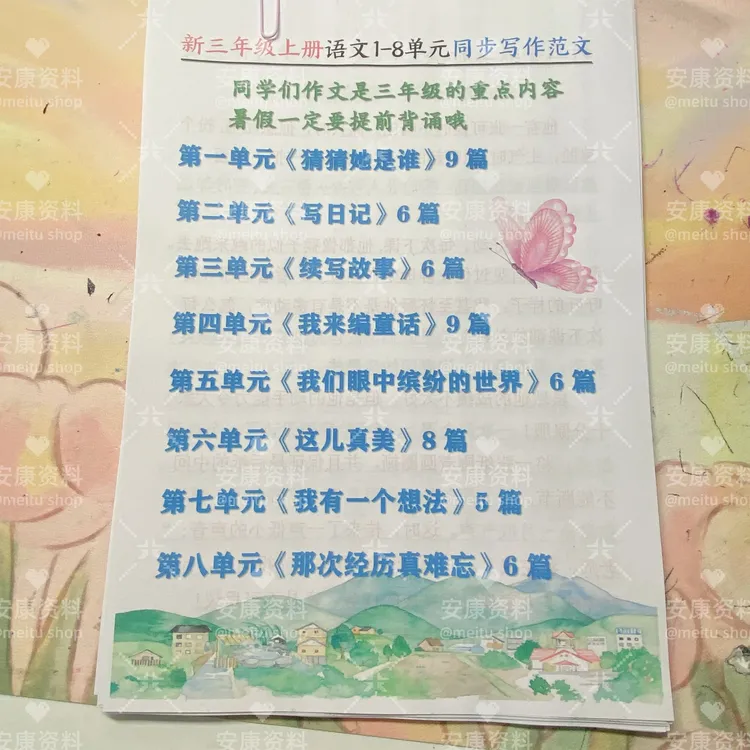 新三年级上册语文1-8单元同步写作范文
同学们作文是三年级的重点内容
暑假一定要提前背诵哦
第一单元《猜猜她是谁》9篇
第二单元《写日记》6篇
第三单元《续写故事》6篇
第四单元《我来编童话》9篇
第五单元《我们眼中缤纷的世界》6篇
第六单元《这儿真美》8篇
第七单元《我有一个想法》5篇
第八单元《那次经历真难忘》6篇
安康资料
@meitu shop